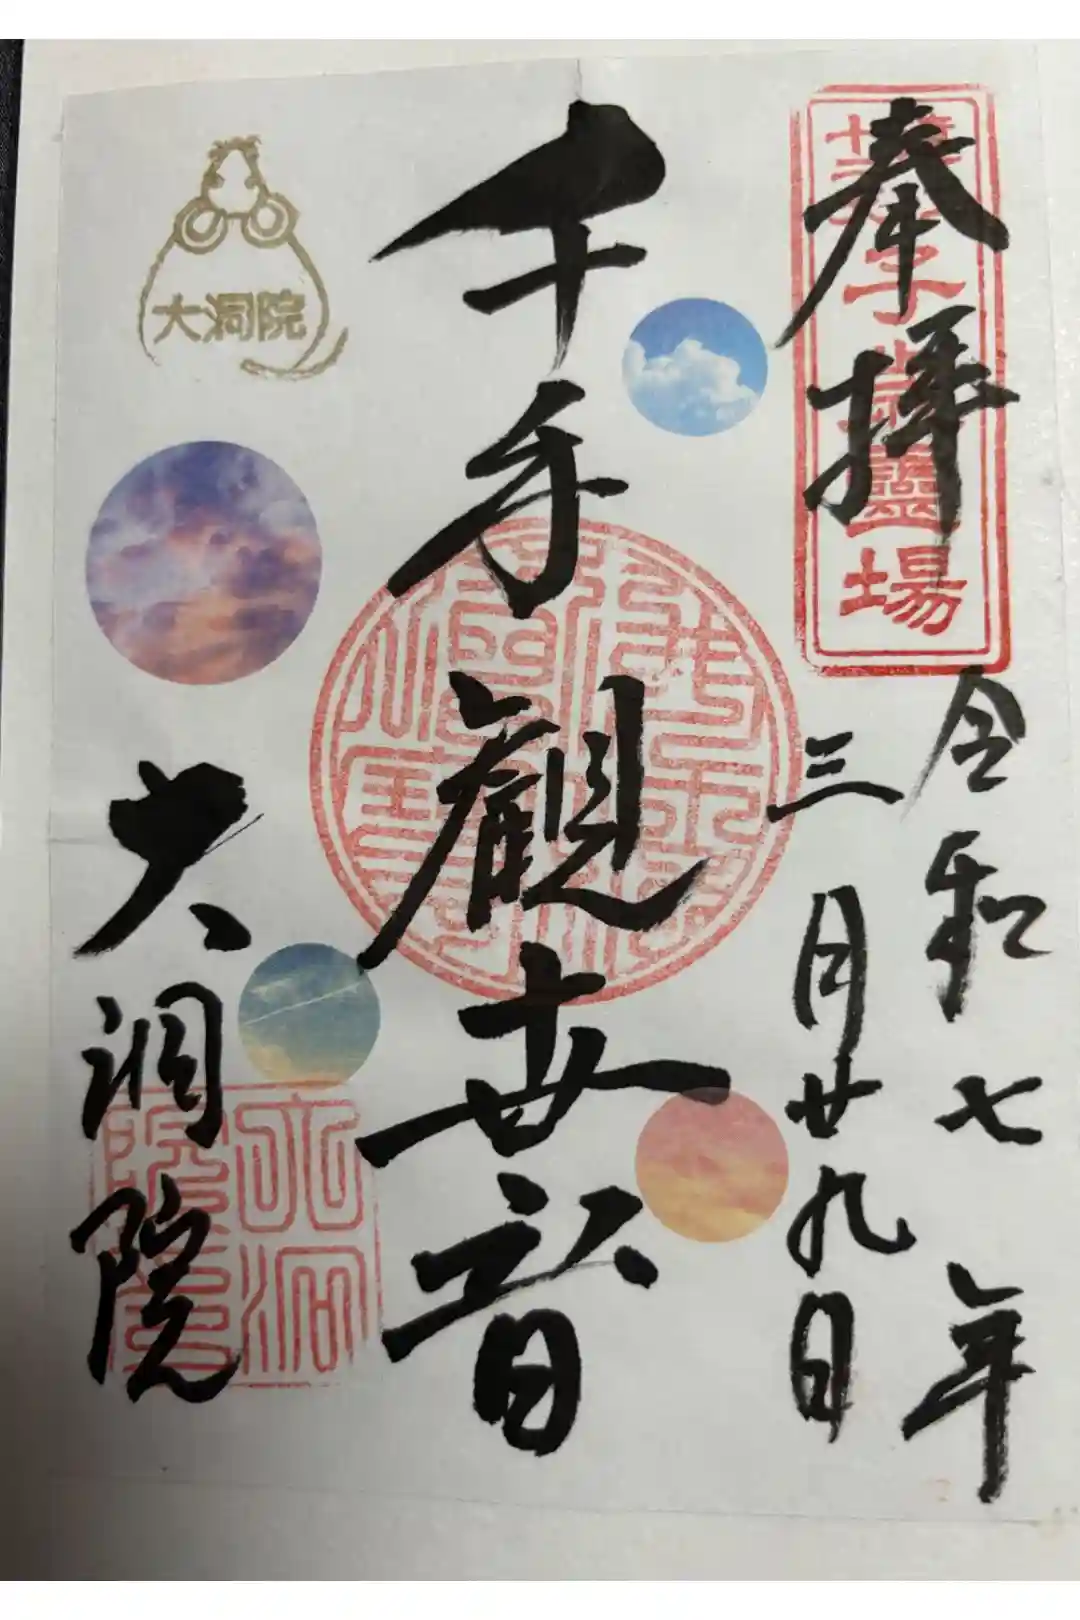 奉拜
子歳靈場
令和七年
三月廿九日
千手觀世音
大洞院
大洞院